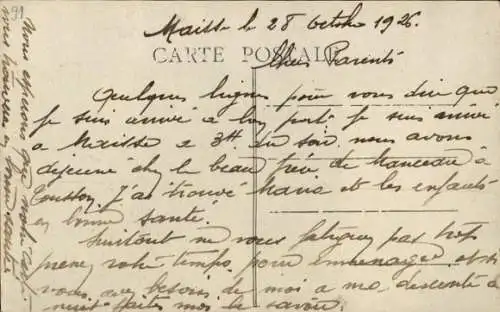 91
Maisse le 28 Octobre 1926.
CARTE POSTALE
Chers Parents
Quelques lignes pour vous dire que
je suis arrivé a bon port. Je suis arrivé
a Maisse a 3H du soir. nous avons
dejeuné chez le beau frère de Manceau à
Tousson. J'ai trouvé et les enfants
en bonne santé.
Surtout ne vous fatiguez pas trop
prenez votre temps pour emmenager et si
vous avez besoins de moi a ma descente de
nuit faites moi le savoir.
Nous esperons que votre
vous trouvera en bonne santé